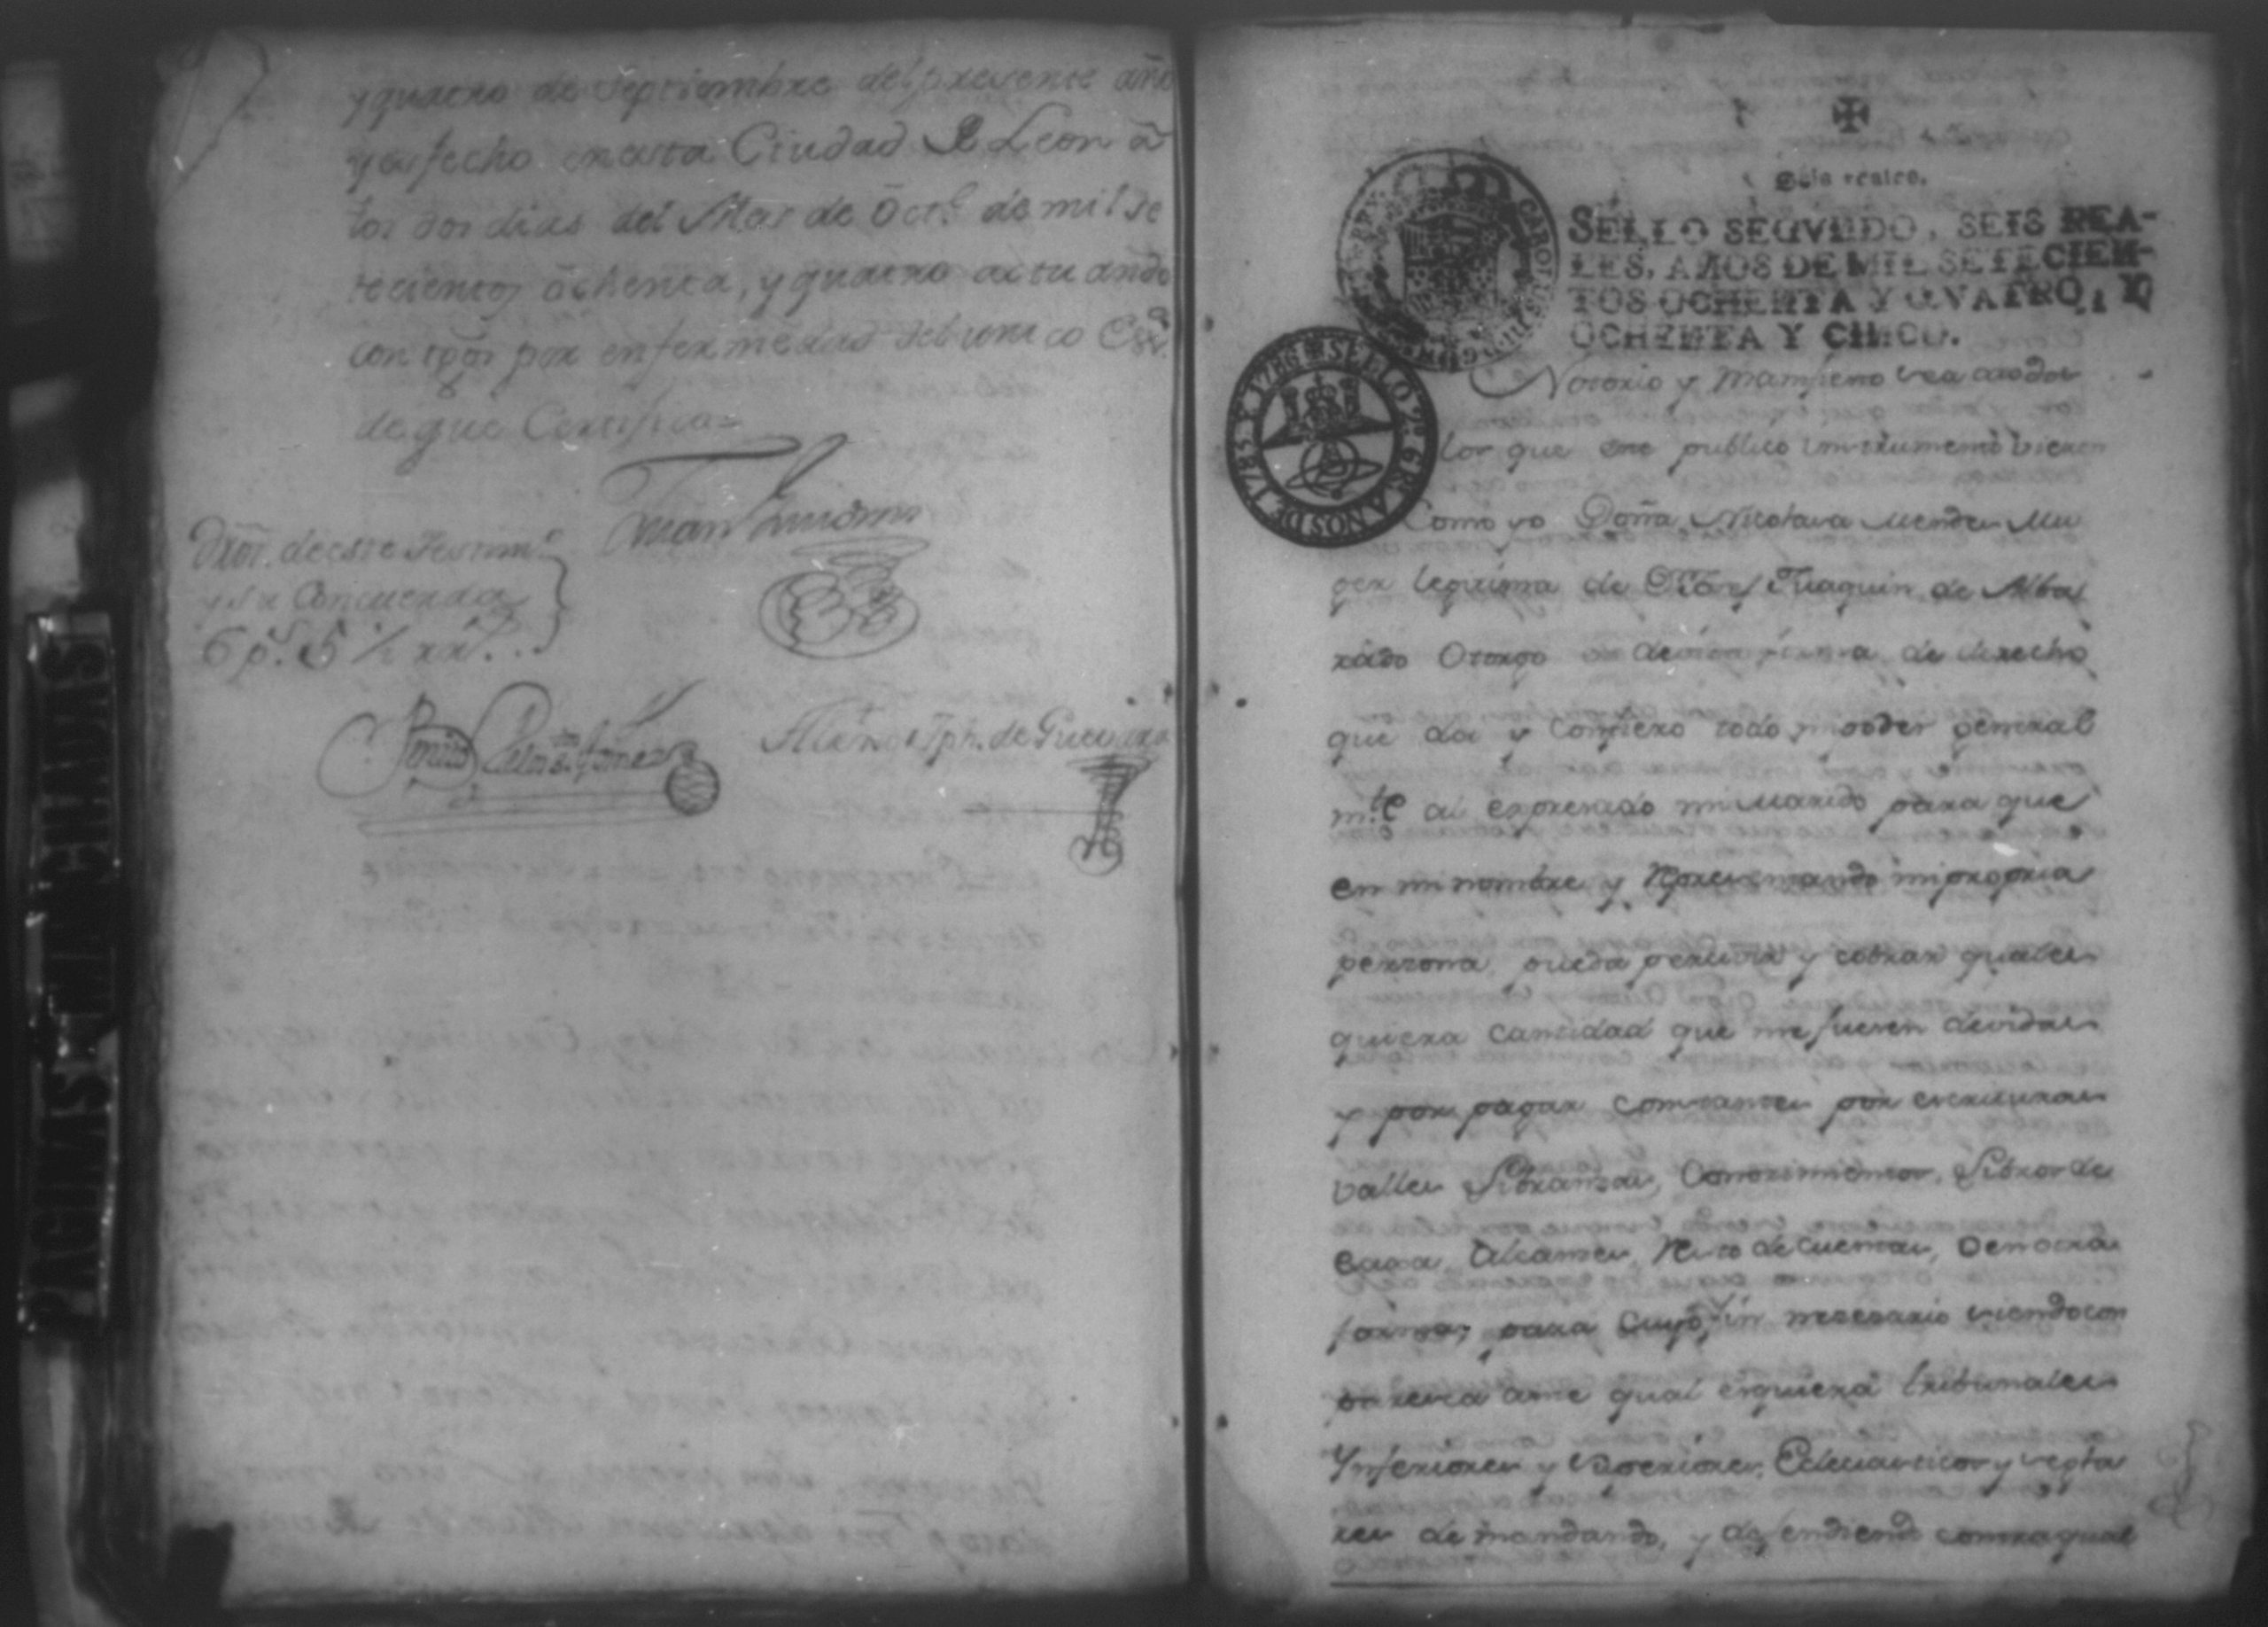 y quatro de Septiembre del presente año
y es fecho en esta Ciudad de Leon â
los dos dias del Mes de Oct.e de mil se
tecientos ôchenta, y quatro actuando
con tgõs por enfermedad del unico Essno
de que Certifico=
Juan
Dros. de este Testim.o
y su Concuerda
6 p.s 5 1/2 rr.s
Gomez
Jph. de Guevara
PAGINAS MAL FECHADAS
Seis reales.
SELLO SEGVNDO, SEIS REA-
LES, AÑOS DE MIL SETECIEN-
TOS OCHENTA Y QVATRO, Y
OCHENTA Y CINCO.
SELLO 2º 6 R AÑOS DE 1785 Y 1786
Notorio y Manifiesto sea a todos
los que este publico instrumento vieren
Como yo Doña Nicolasa Mendez Mu
ger legitima de Dn Joaquin de Alba
rado Otorgo de derecho
que doi y confiero todo mi poder general
m.te al expresado mi Marido para que
en mi nombre y Representando mi propria
perzona pueda percivir y cobrar quales
quiera cantidad que me fueren devidas
y por pagar constantes por escrituras
valles Libranzas, Conozimientos, Libros de
Caxa, Alcanzes, Resto de cuentas, ô en otra
forma, para cuyo fin nesesario siendo com
paresca ante qual esquiera tribunales
Ynferiores y Superiores, Eclesiasticos y segla
res demandando, y defendiendo contra qual